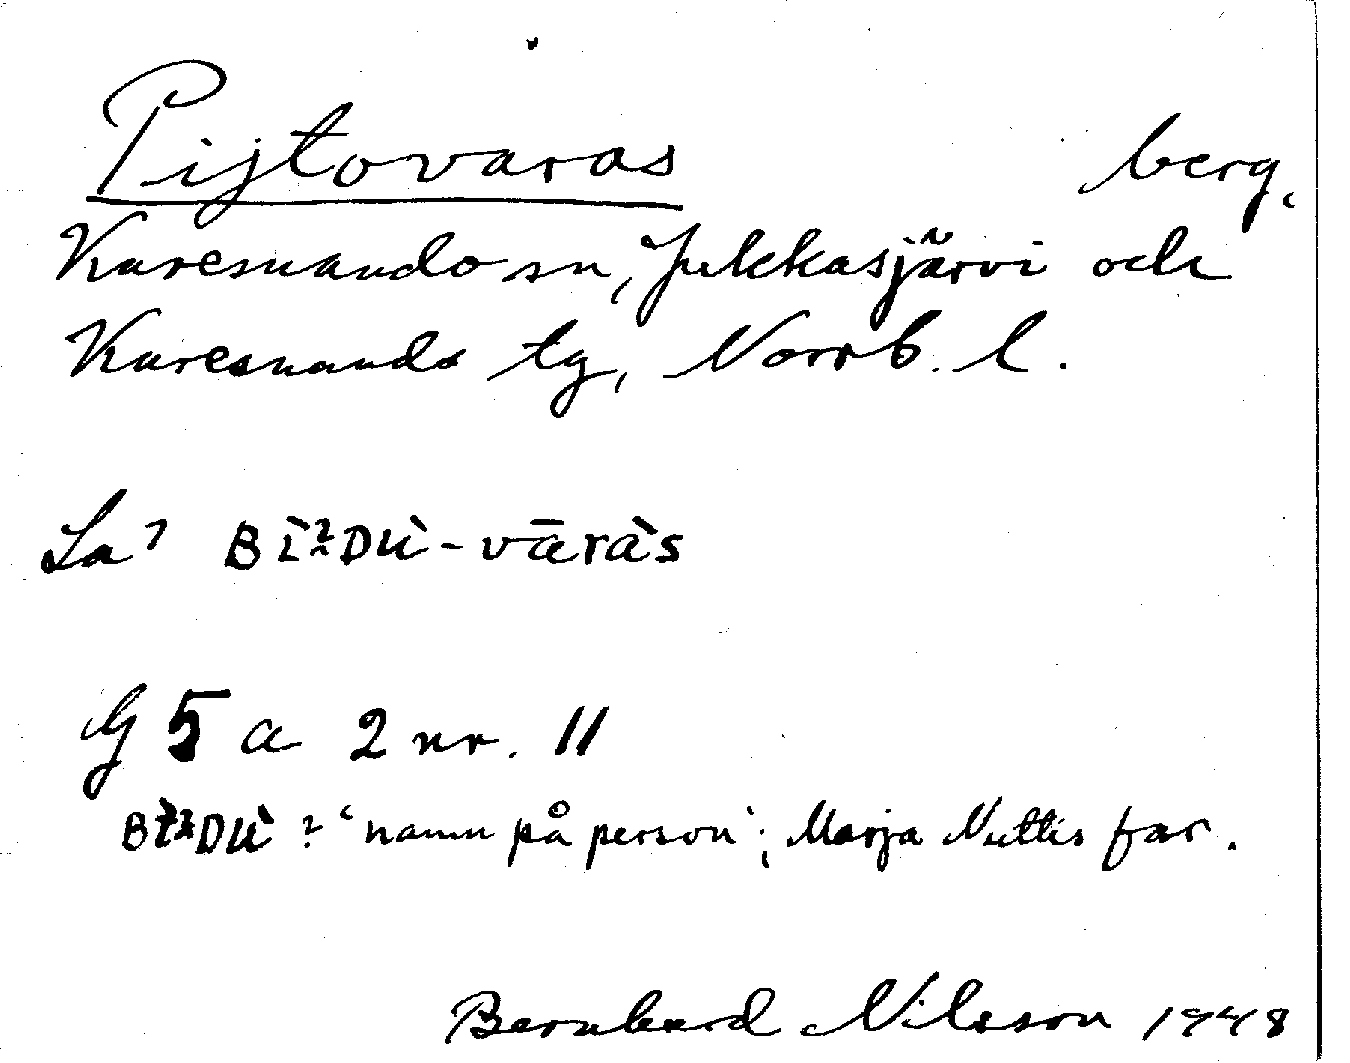 Pijtovaras berg,
Karesuando sn, Jukkasjärvi och
Karesuando tg, Norrb. l.
La?
G 5 a 2 nr. 11
? ‘namn på person’; Marja Nuttis far.
Bernhard Nilsson 1948